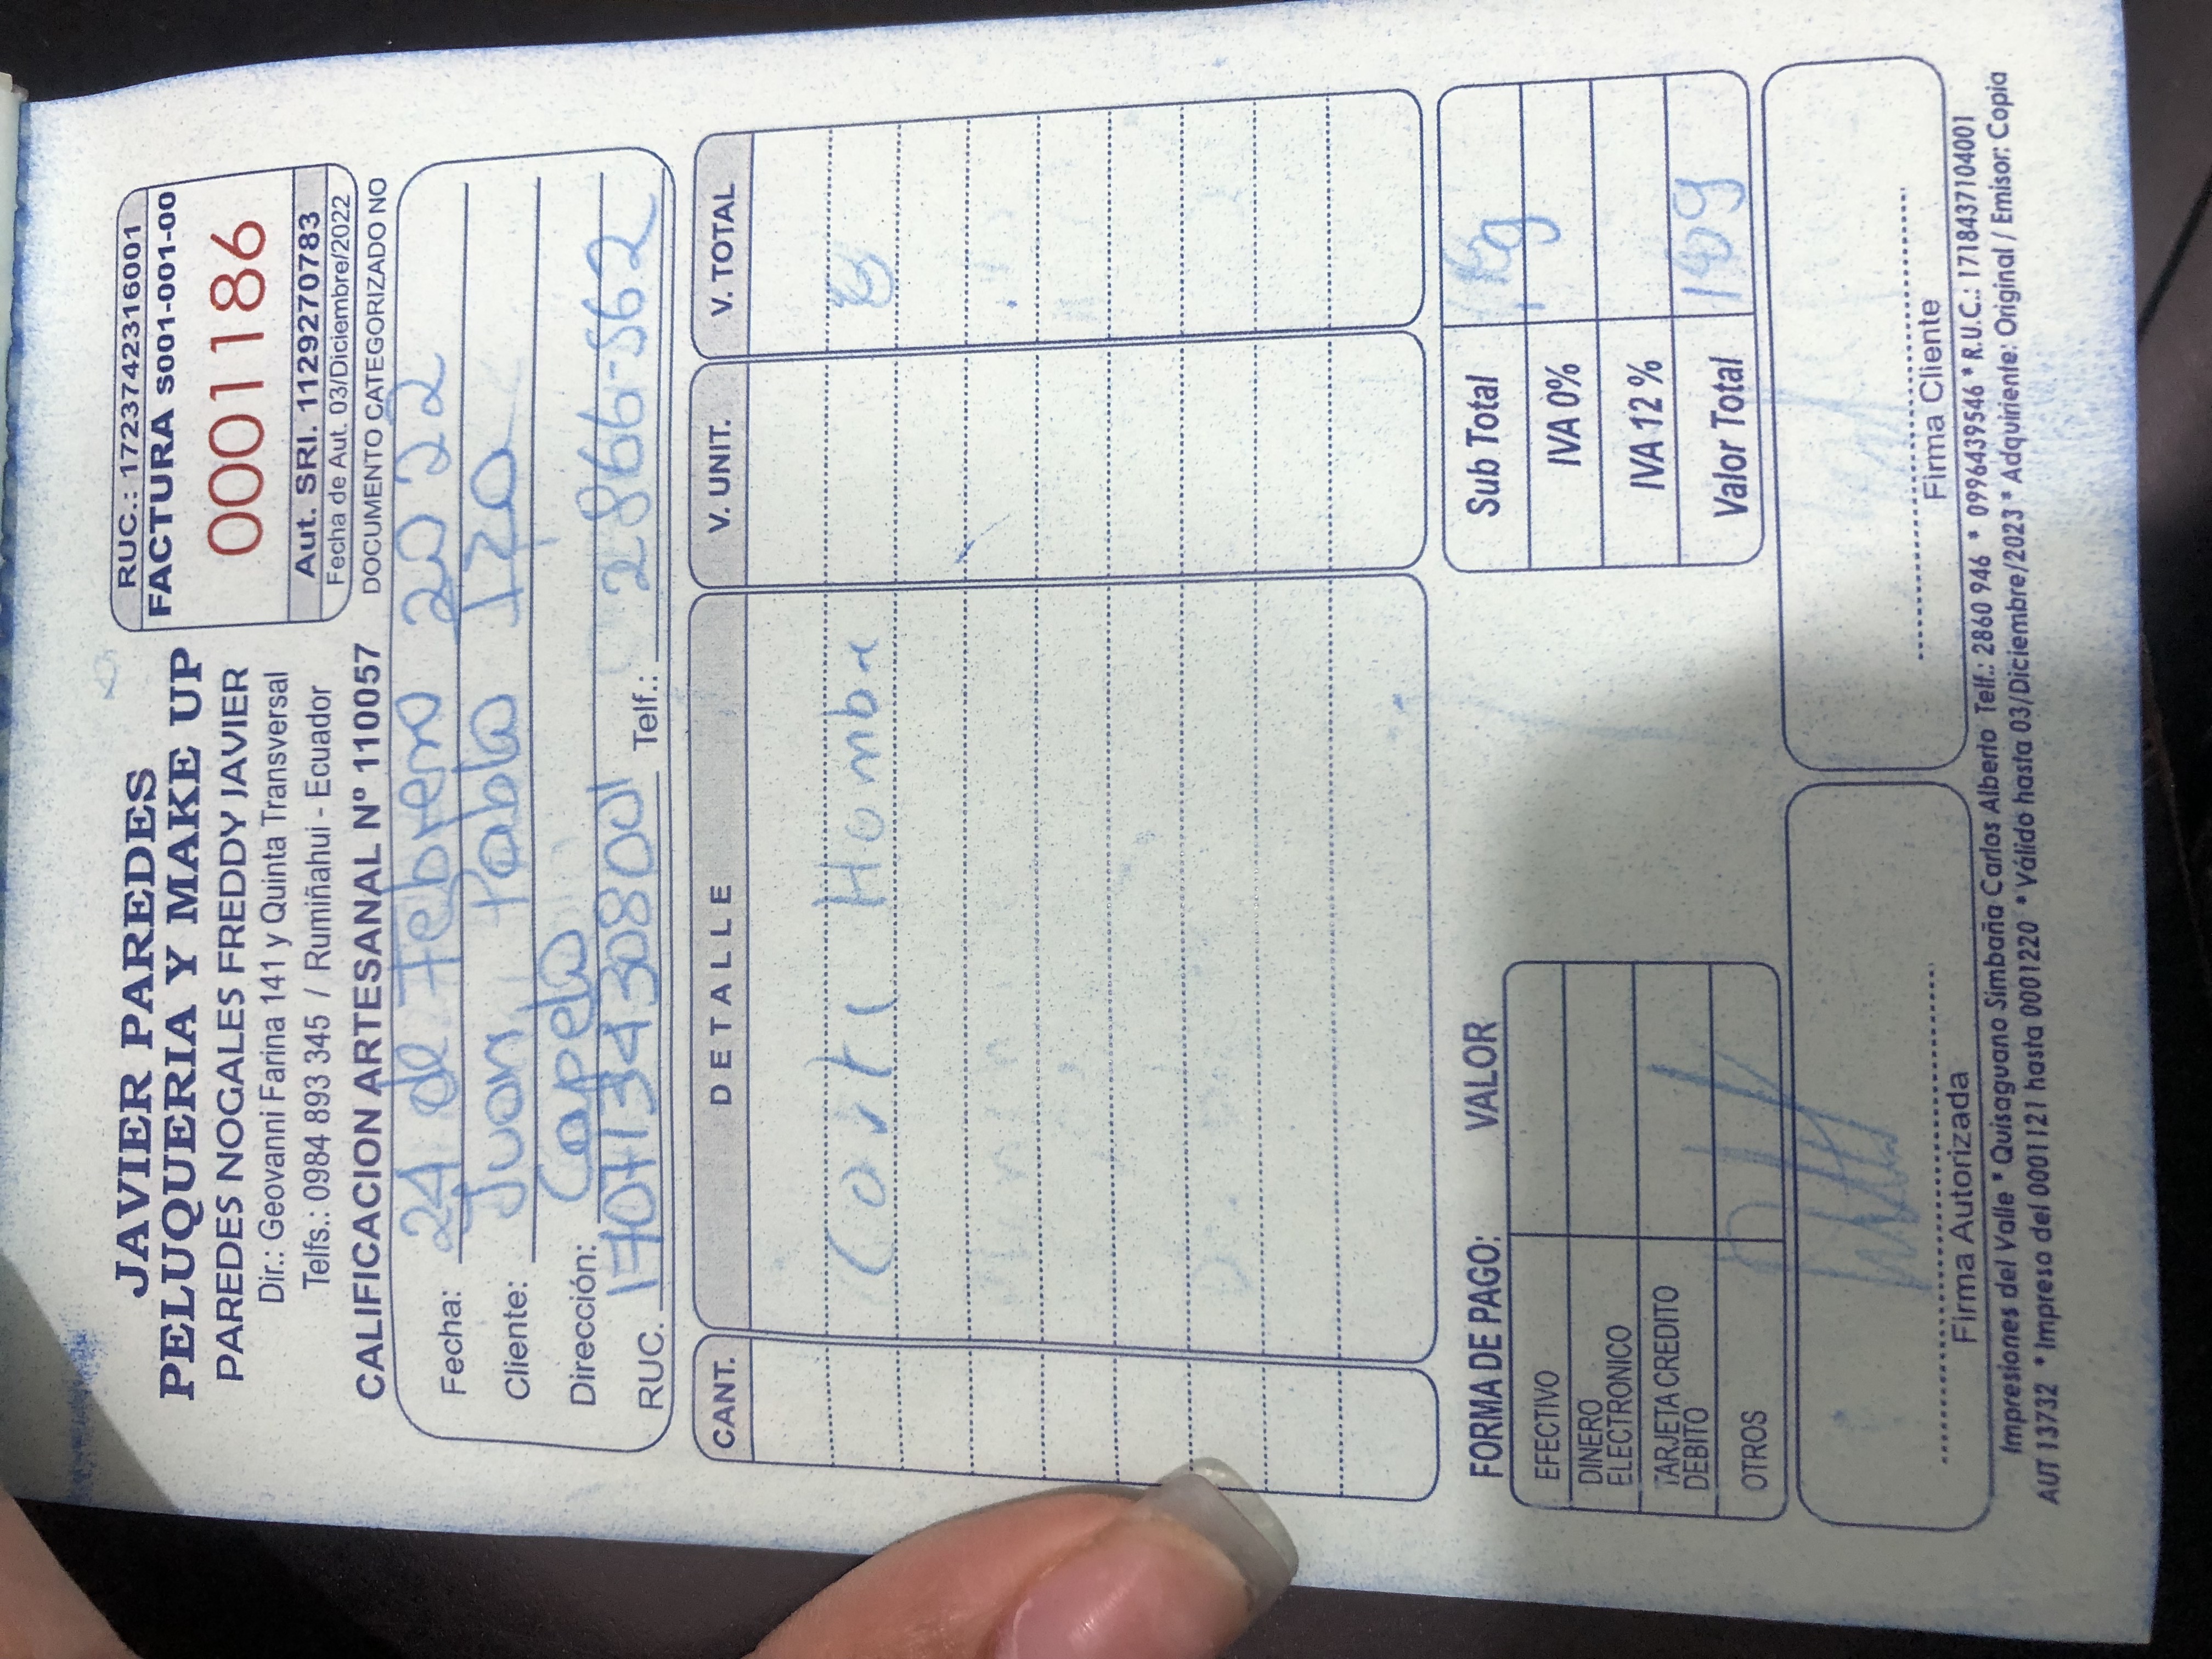 JAVIER PAREDES
PELUQUERIA Y MAKE UP
PAREDES NOGALES FREDDY JAVIER
Dir.: Geovanni Farina 141 y Quinta Transversal
Telfs.: 0984 893 345 / Rumiñahui - Ecuador
CALIFICACION ARTESANAL Nº 110057
RUC.: 1723742316001
FACTURA S001-001-00
0001186
Aut. SRI. 1129270783
Fecha de Aut. 03/Diciembre/2022
DOCUMENTO CATEGORIZADO NO
Fecha: 24 de Febrero 2022
Cliente: Juan Pablo Iza
Dirección: Capelo
RUC. 1707134308001 Telf.: 2866-562
CANT. DETALLE V. UNIT. V. TOTAL
Corte Hombre
FORMA DE PAGO: VALOR
EFECTIVO
DINERO
ELECTRONICO
TARJETA CREDITO
DEBITO
OTROS
Sub Total
IVA 0%
IVA 12 %
Valor Total
Firma Autorizada
Firma Cliente
Impresiones del Valle * Quisaguano Simbaña Carlos Alberto Telf.: 2860 946 * 0996439546 * R.U.C.: 1718437104001
AUT 13732 * Impreso del 0001121 hasta 0001220 * Válido hasta 03/Diciembre/2023 * Adquiriente: Original / Emisor: Copia